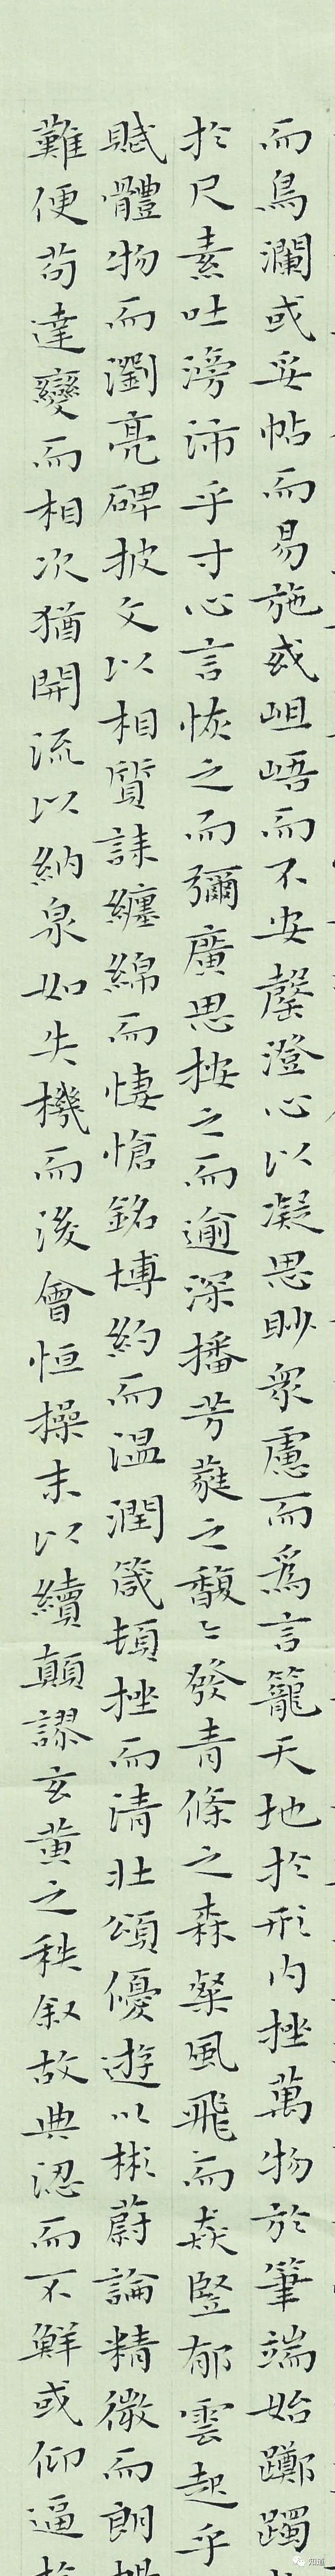 而鳥瀾或妥帖而易施或岨峿而不安罄澄心以凝思眇衆慮而爲言籠天地於形内挫萬物於筆端始躑躅
於尺素吐滂沛乎寸心言恢之而彌廣思按之而逾深播芳蕤之馥〻發青條之森粲風飛而猋竪郁雲起乎
賦體物而瀏亮碑披文以相質誄纏綿而悽愴銘博約而温潤箴頓挫而清壯頌優遊以彬蔚論精微而朗
難便苟達變而相次猶開流以納泉如失機而後會恒操末以續顛謬玄黄之秩叙故典認而不鮮或仰逼
知道